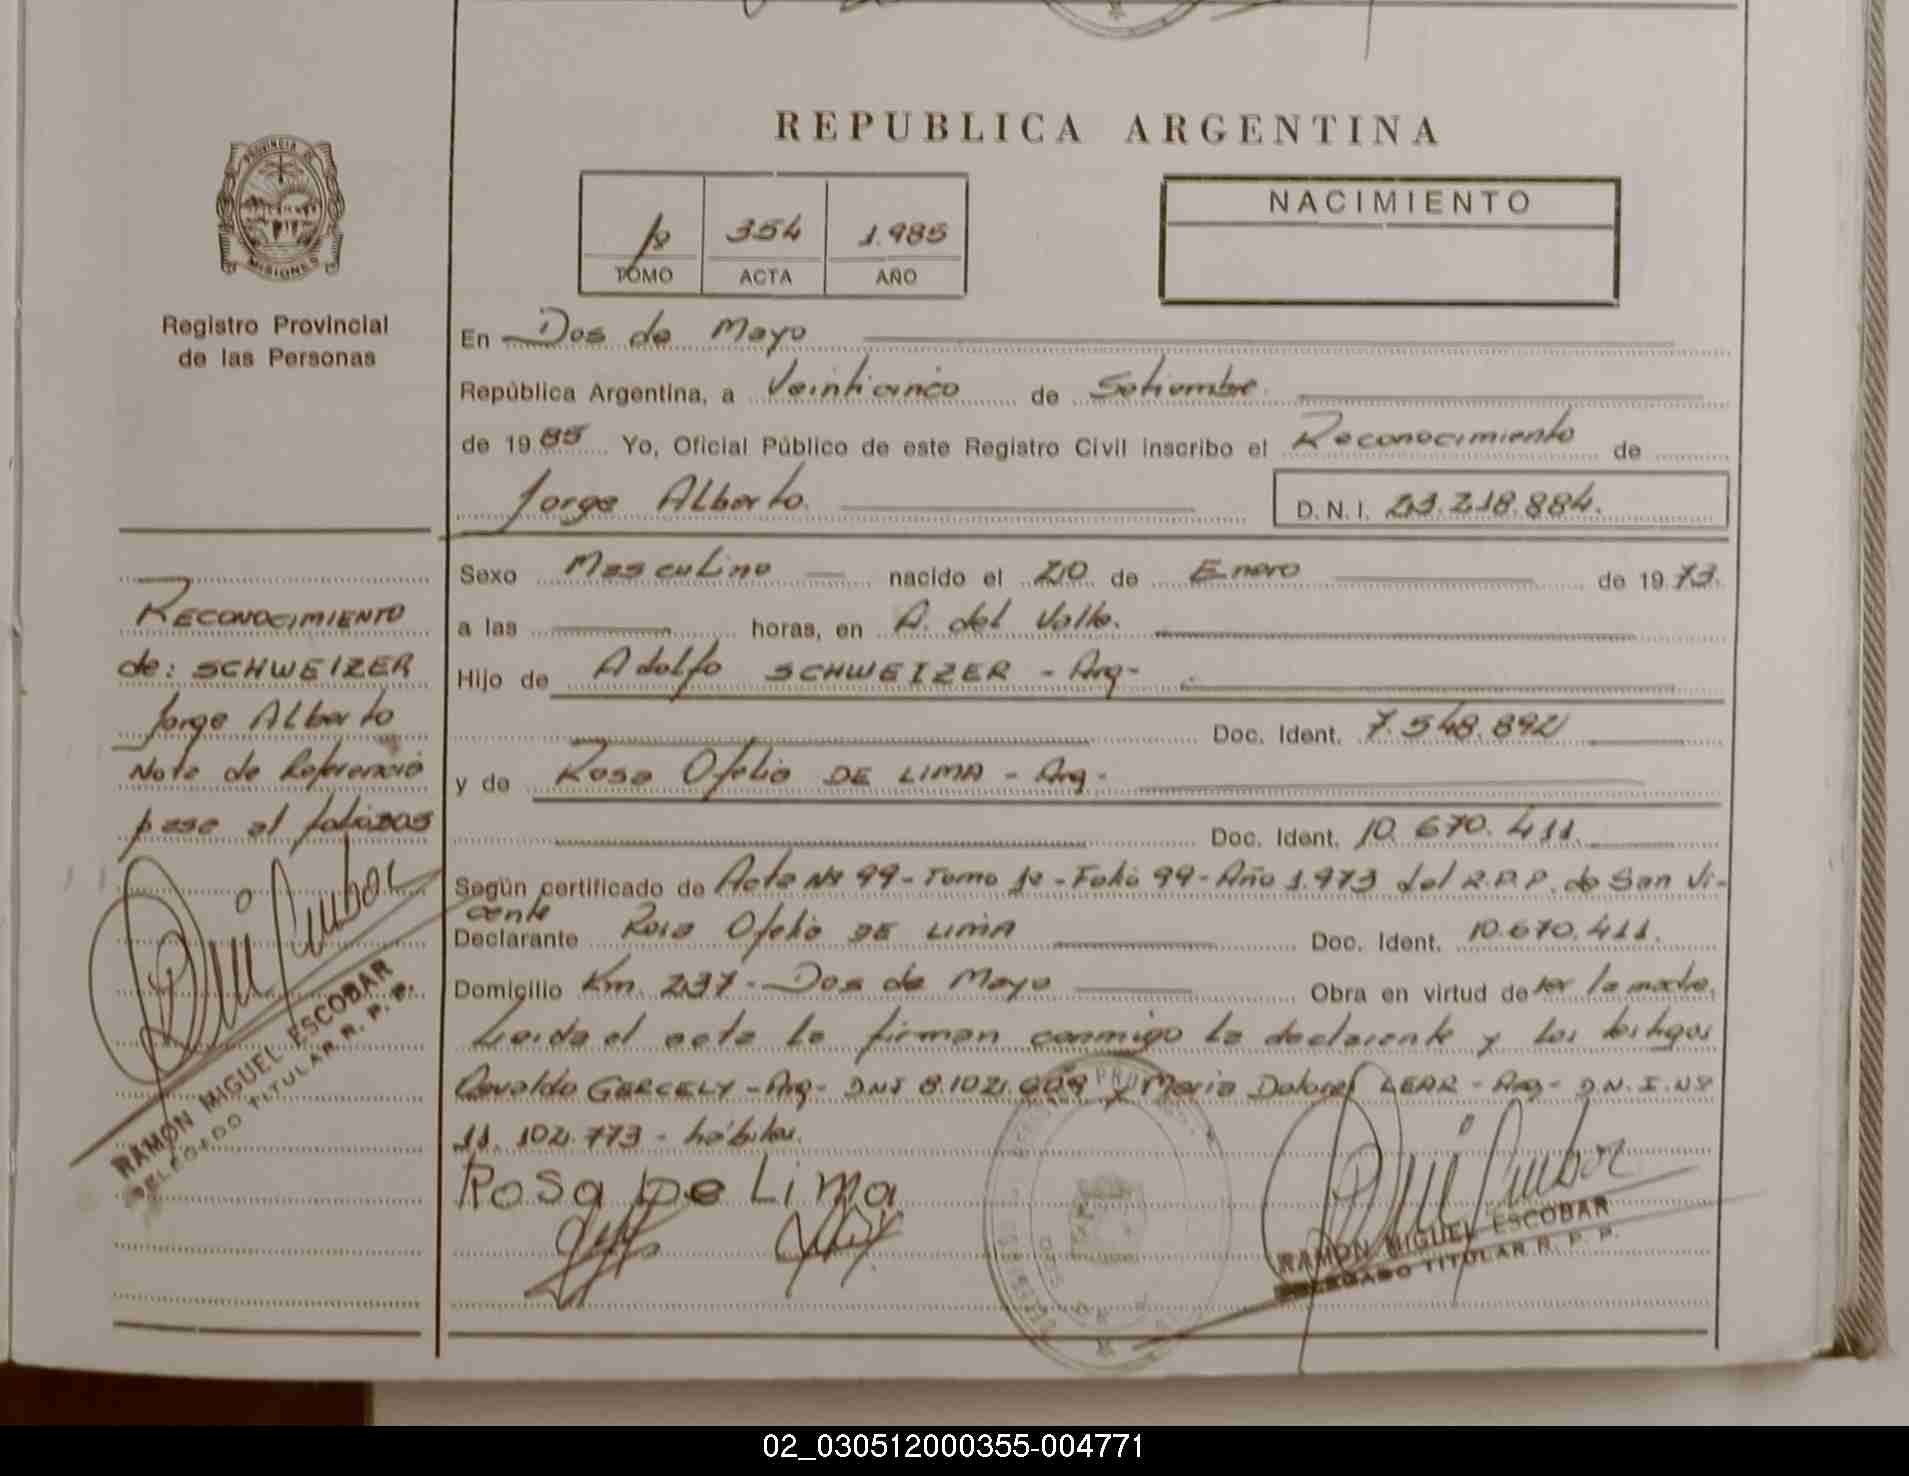 REPUBLICA ARGENTINA
PROVINCIA DE
MISIONES
Registro Provincial
de las Personas
354 1.985
TOMO ACTA AÑO
NACIMIENTO
En Dos de Mayo
República Argentina, a Veinticinco de Setiembre
de 1985 Yo, Oficial Público de este Registro Civil inscribo el Reconocimiento de
Jorge Alberto D.N.I. 23.218.884.
Sexo Masculino nacido el 20 de Enero de 1973.
a las horas, en A. del Valle.
Hijo de Adolfo SCHWEIZER - Arg-
Doc. Ident. 7.548.892
y de Rosa Ofelia DE LIMA - Arg-
Doc. Ident. 10.670.411.
Según certificado de Acta Nº 99 - Tomo 1º - Folio 99 - Año 1.973 del R.P.P. de San Vi-
cente
Declarante Rosa Ofelia DE LIMA Doc. Ident. 10.670.411.
Domicilio Km. 237 - Dos de Mayo Obra en virtud de ser la madre.
Leida el acta la firman conmigo la declarante y los testigos
Osvaldo GERCELY - Arg- DNI 8.102.609 y Maria Dolores LEAR - Arg- D.N.I. Nº
11.102.773 - hábiles.
Rosa De Lima
RAMON MIGUEL ESCOBAR
DELEGADO TITULAR R. P. P.
RECONOCIMIENTO
de: SCHWEIZER
Jorge Alberto
Nota de Referencia
pase al folio
RAMON MIGUEL ESCOBAR
DELEGADO TITULAR R. P. P.
02_030512000355-004771